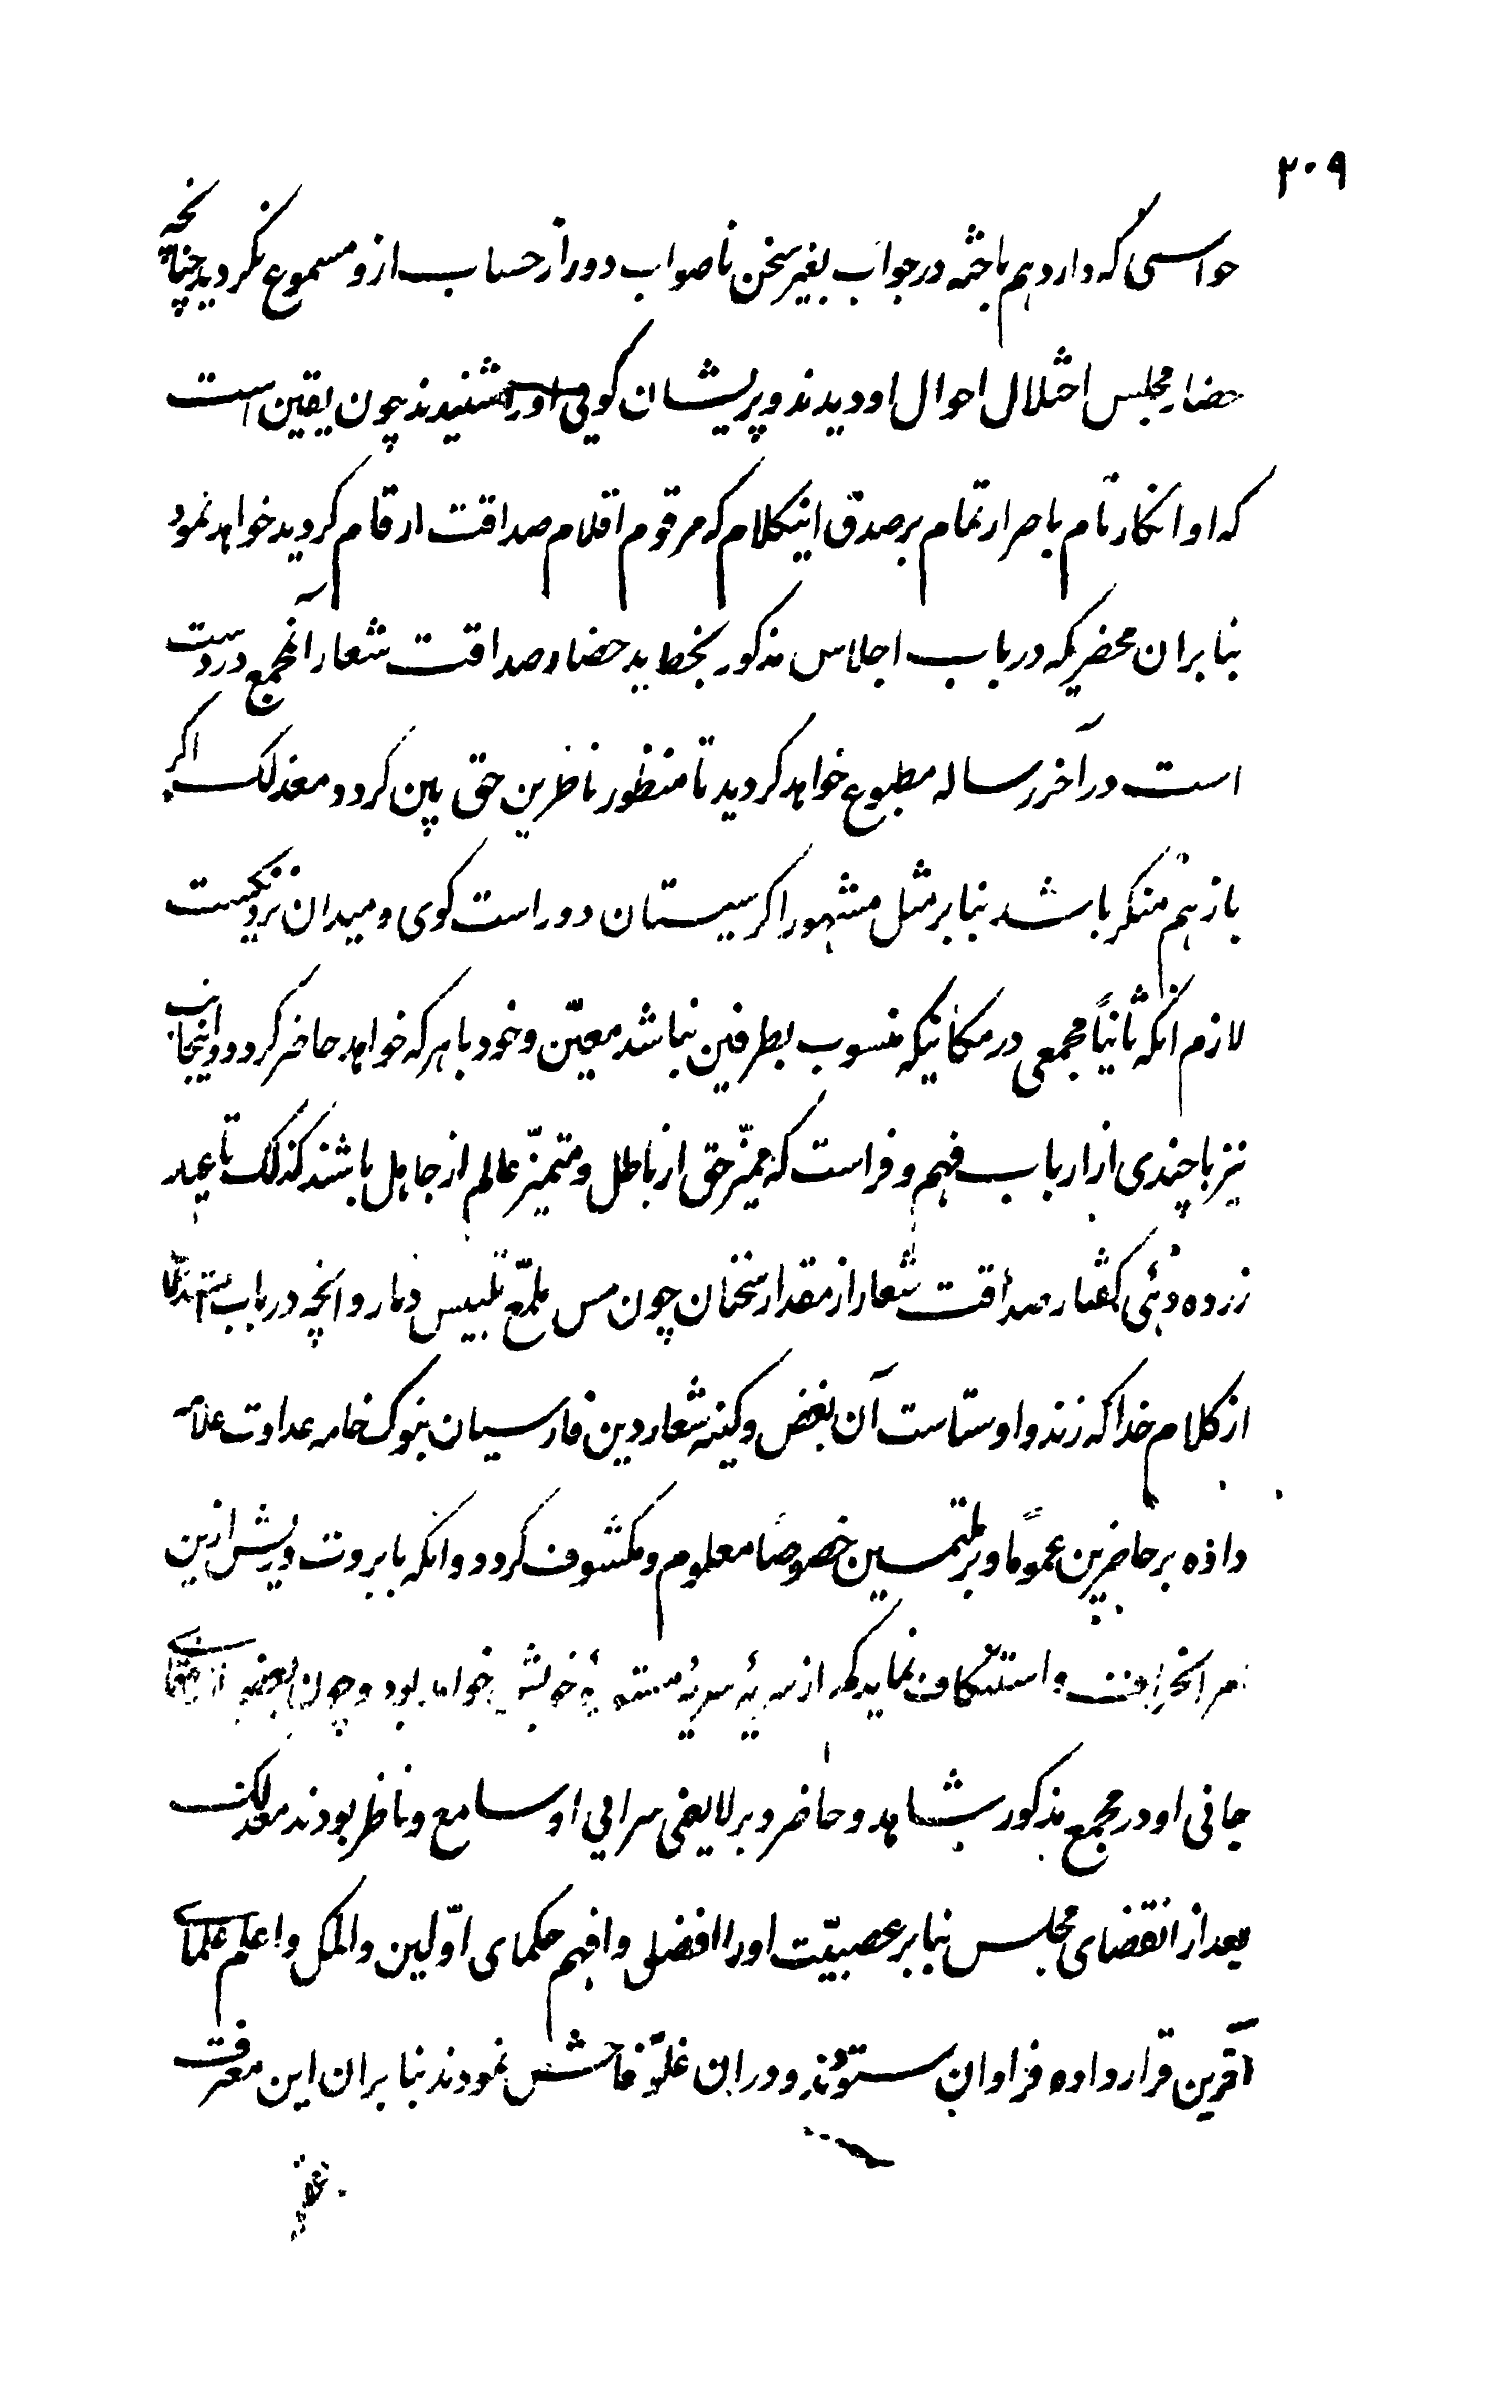 ۲۰۹
حواسی که دارد هم باخته در جواب بغیر سخن ناصواب دور از حساب ازو مسموع نکردید چنانچه
حضار مجلس اختلال احوال او دیدند و پریشان کویی اورا شنیدند چون یقین است
که او انکار تام باصرار تمام بر صدق اینکلام که مرقوم اقلام صداقت ارقام کردید خواهد نمود
بنابران محضریکه در باب اجلاس مذکور بخط ید حضار صداقت شعار آنمجمع در دست
است در آخر رساله مطبوع خواهد کردید تا منظور ناظرین حق بین کردد و معذلک اکر
باز هم منکر باشد بنابر مثل مشهور اکر سیستان دور است کوی و میدان نزدیکست
لازم انکه ثانیاً مجمعی در مکانیکه منسوب بطرفین نباشد معیّن و خود باهر که خواهد حاضر کردد و اینجانب
نیز با چندی از ارباب فهم و فراست که ممیّز حق از باطل و متمیّز عالم از جاهل باشند کذلک تا عیار
زر ده دهی کفتار صداقت شعار از مقدار سخنان چون مس ملمّع تلبیس دثار و انچه در باب استهزا
از کلام خدا که زند و اوستاست آن بغض و کینه شعار دین فارسیان بنوک خامه عداوت علامه
داده بر حاضرین عموماً و بر ملتمسین خصوصاً معلوم و مکشوف کردد و انکه با بروت و ریش ازین
امر انحراف و استنکاف نماید که از خویش خواهد بود و چون بعضی از رفقای
جانی او در مجمع مذکور شاهد و حاضر و بر لایعنی سرایی او سامع و ناظر بودند معذلک
بعد از انقضای مجلس بنابر عصبیّت اورا افضل و افهم حکمای اوّلین و اکمل و اعلم علمای
آخرین قرار داده فراوان ستودند و دران غلوّ فاحش نمودند بنابران این معرفت